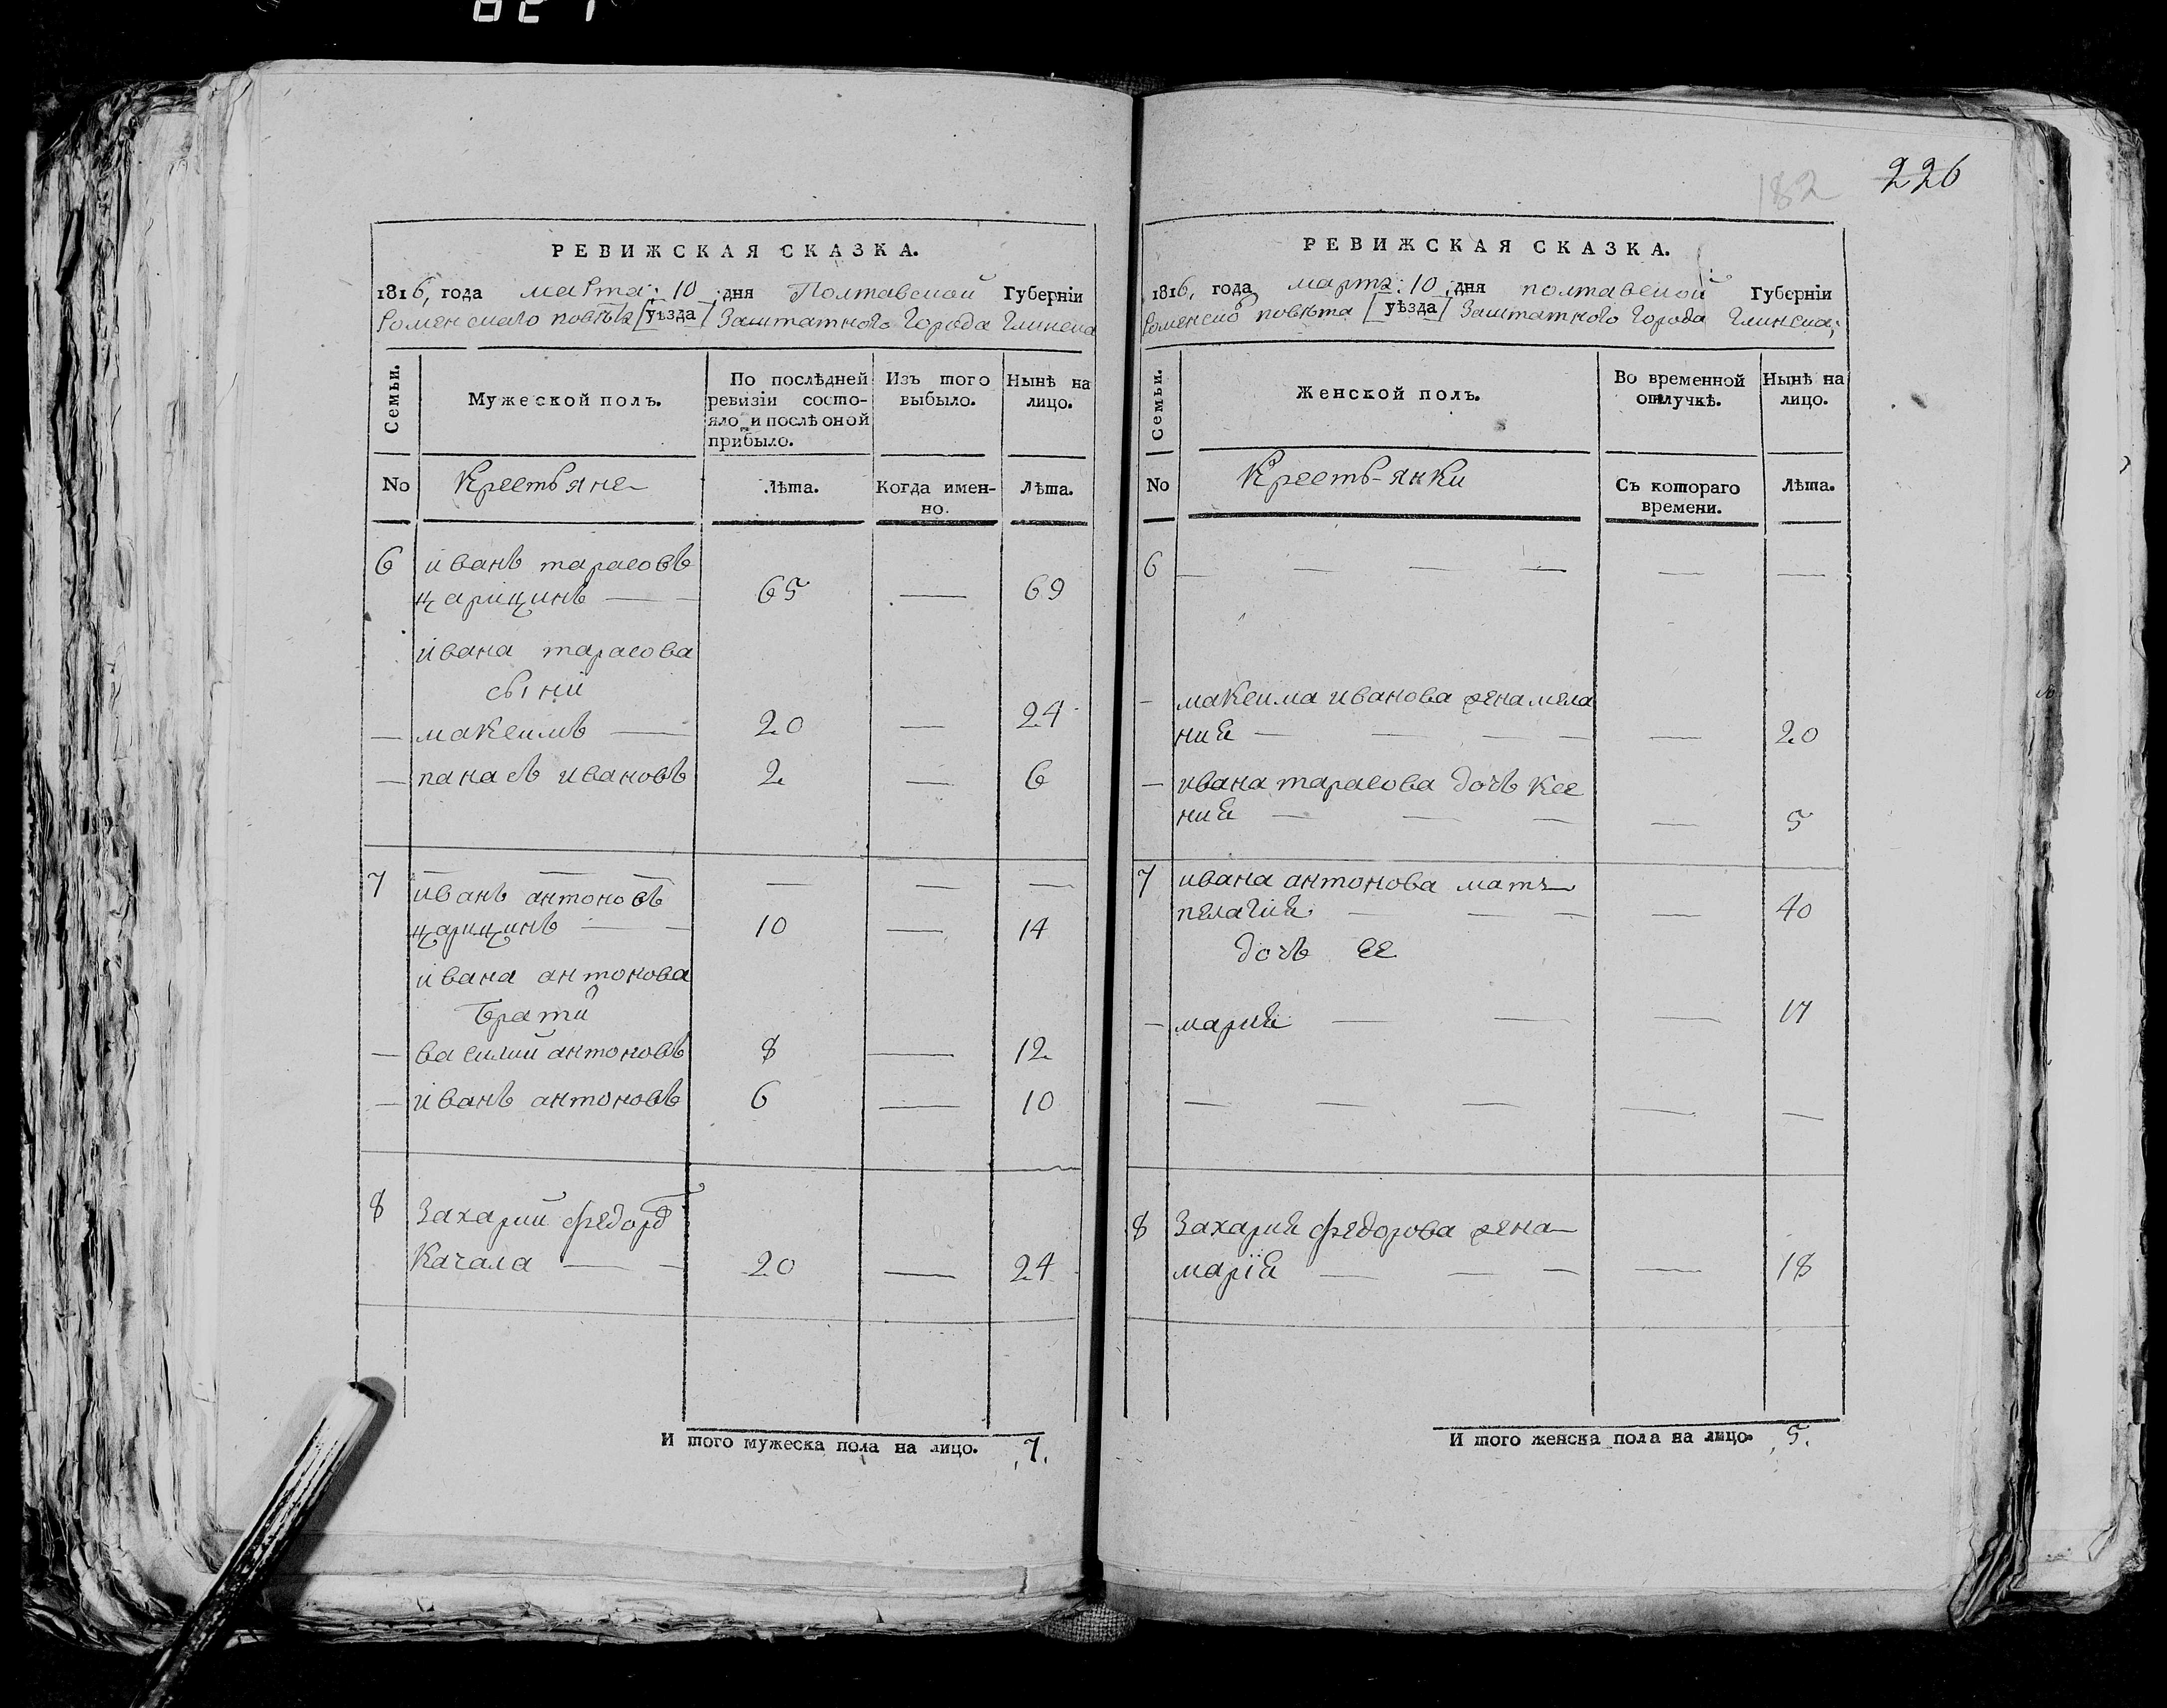 182 226
РЕВИЖСКАЯ СКАЗКА.
1816, года марта: 10 дня Полтавской Губерніи
Роменскаго повѣта [уѣзда] Заштатного Города Глинска
Семьи.
Мужеской полъ.
По послѣдней
ревизіи состо-
яло и послѣ оной
прибыло.
Изъ того
выбыло.
Нынѣ на
лицо.
No Крестьяне Лѣта. Когда имен-
но. Лѣта.
6 иванъ тарасовъ
царицинъ — — 65 — 69
ивана тарасова
сыни
— максимъ — 20 — 24
— панасъ ивановъ 2 — 6
7 — — — — — —
иванъ антоновъ
царицинъ — — 10 — 14
ивана антонова
брати
— василий антоновъ 8 — 12
— иванъ антоновъ 6 — 10
8 Захарий федоров
Качала — — 20 — 24
И того мужеска пола на лицо. 7.
РЕВИЖСКАЯ СКАЗКА.
1816, года марта: 10 дня полтавской Губерніи
Роменског повѣта [уѣзда] Заштатного Города Глинска;
Семьи.
Женской полъ.
Во временной
отлучкѣ.
Нынѣ на
лицо.
No Кресть-янки Съ котораго
времени. Лѣта.
6 — — — — — —
— максима иванова жена мела
ния — — — — — 20
— ивана тарасова дочь ксе
ния — — — — 5
7 ивана антонова мать
пелагия — — — — 40
дочь ее
— мария — — — 17
— — — — —
8 Захария федорова жена
марія — — — — 18
И того женска пола на лицо 5.